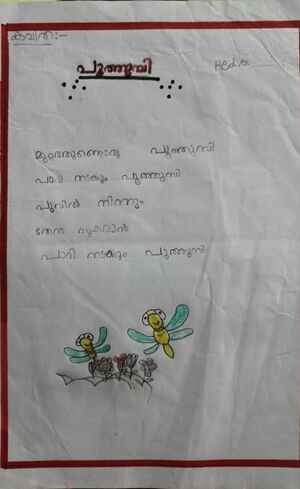 കവിത:-
പൂത്തുമ്പി
മുറ്റത്തുണ്ടൊരു പൂത്തുമ്പി
പാറി നടക്കും പൂത്തുമ്പി
പൂവിൽ നിന്നും
തേൻ നുകരാൻ
പാറി നടക്കും പൂത്തുമ്പി